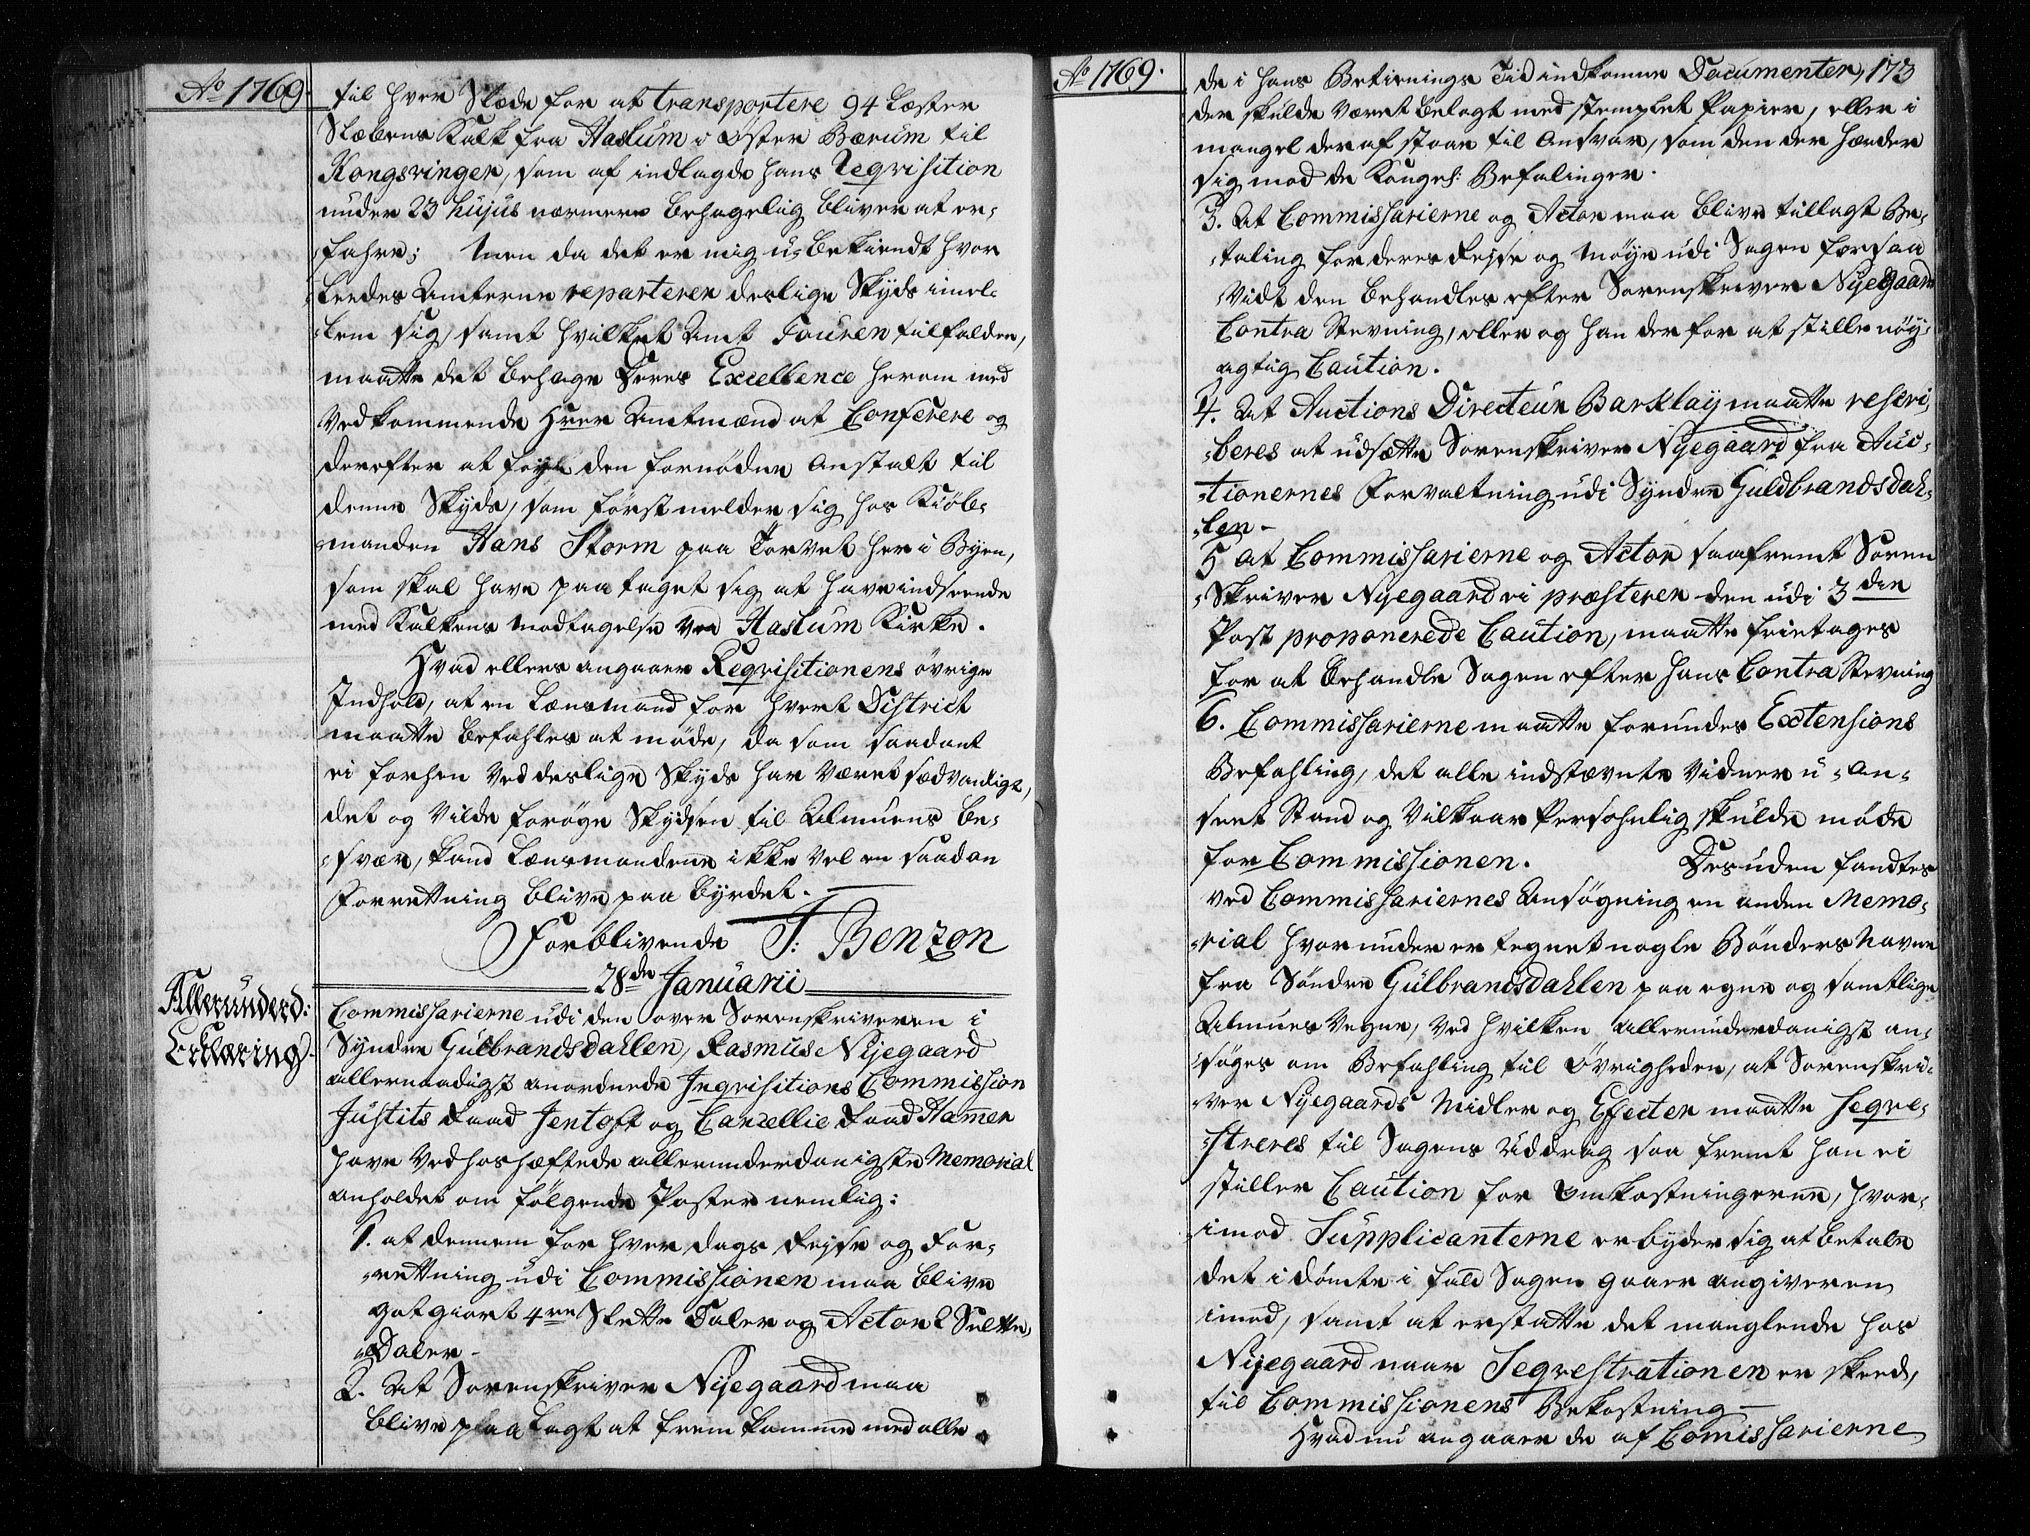 Ao 1769.
til hver Slæde for at transportere 94 Læster
Stæbens Kalk fra Haslum i Øster Bærum til
Kongsvinger, som af indlagde hans Reqvisition
under 23 hujus nærmere behagelig bliver at er-
-fahre; Men da det er mig u-bekiendt hvor
-ledes Amterne reparterer deslige Skyds imel-
-lem sig, samt hvilket Amt Touren tilfalder,
maatte det behage Deres Excellence herom med
Vedkommende Hrer Amtmænd at Conferere og
derefter at føye den fornødne Anstalt til
denne Skyds, som først melder sig hos Kiøb-
-manden Hans Storm paa Torvet her i Byen,
som skal have paataget sig at have indseende
med Kalkens Modtagelse ved Haslum Kirke.
Hvad ellers angaaer Reqvisitionens øvrige
Indhold, at en Lænsmand for hvert District
maatte befahles at møde, da som saadant
ei forhen ved deslige Skyds har været sædvanligt,
det og vilde forøge Skydsen til Almuens Be-
-svær, kand Lænsmændene ikke vel en saadan
Forretning blive paa byrdet.
Forblivende T: Benzon
28de Januarii
Allerunderd:
Erklæring.
Commissarierne udi den over Sorenskriveren i
Syndre Gulbrandsdahlen, Rasmus Nijegaard
allernaadigst anordnede Inqvisitions Commission
Justits Raad Jentoft og Cancellie Raad Hamer
have ved hoshæftede allerunderdanigste Memorial
anholdet om følgende Poster nemlig:
1. at dennem for hver dags Reise og For-
-rettning udi Commissionen maa blive
godgiort 4re Slette Daler og Actor 2 Slette
Daler -
2. At Sorenskriver Nijegaard maa
blive paalagt at fremkomme med alle
Ao 1769.
173
de i hans Betienings Tid indkomne Documenter,
der skulde været belagt med stemplet Papier, eller i
mangel deraf staar til Ansvar, som den der handler
sig mod de Kongel: Befalinger.
3. At Commissarierne og Actor maa blive tillagt Be-
-taling for deres Reise og Møye udi Sagen forsaa
vidt den behandles efter Sorenskriver Nijegaards
Contra Stevning, eller og han derfor at stille nøy-
agtig Caution.
4. At Auctions Directeur Barklaij maatte rescri-
-beres at udsætte Sorenskriver Nijegaard fra Auc-
-tionernes Forvaltning udi Syndre Guldbrandsdah-
-len -
5 at Commissarierne og Actor saafremt Soren
-Skriver Nijegaard ei præsterer den udi 3die
Post proponerede Caution, maatte frietages
for at behandle Sagen efter hans Contra Stevning
6. Commissarierne maatte forundes Extensions
Befahling, det alle indstævnte Vidner u-an-
seet Stand og Vilkaar Personlig skulde møde
for Commissionen. Desuden fandtes
ved Commissariernes Ansøgning en anden Memo-
-rial hvorunder er tegnet nogle Bønders Navne
fra Søndre Gulbrandsdahlen paa egne og samtlige
Almues Vegne, ved hvilken allerunderdanigst an-
-søges om Befahling til Øvrigheden, at Sorenskri-
-ver Nijegaards Midler og Effecter maatte Seqve-
-streres til Sagens Uddrag saa fremt han ei
stiller Caution for Omkostningerne, hvor-
-imod Supplicanterne erbyder sig at betale
det idømte i fald Sagen gaaer angiveren
imod, samt at erstatte det manglende hos
Nijegaard naar Seqvestrationen er skeed,
til Commissionens Bekostning -
Hvad nu angaaer de af Comissarierne